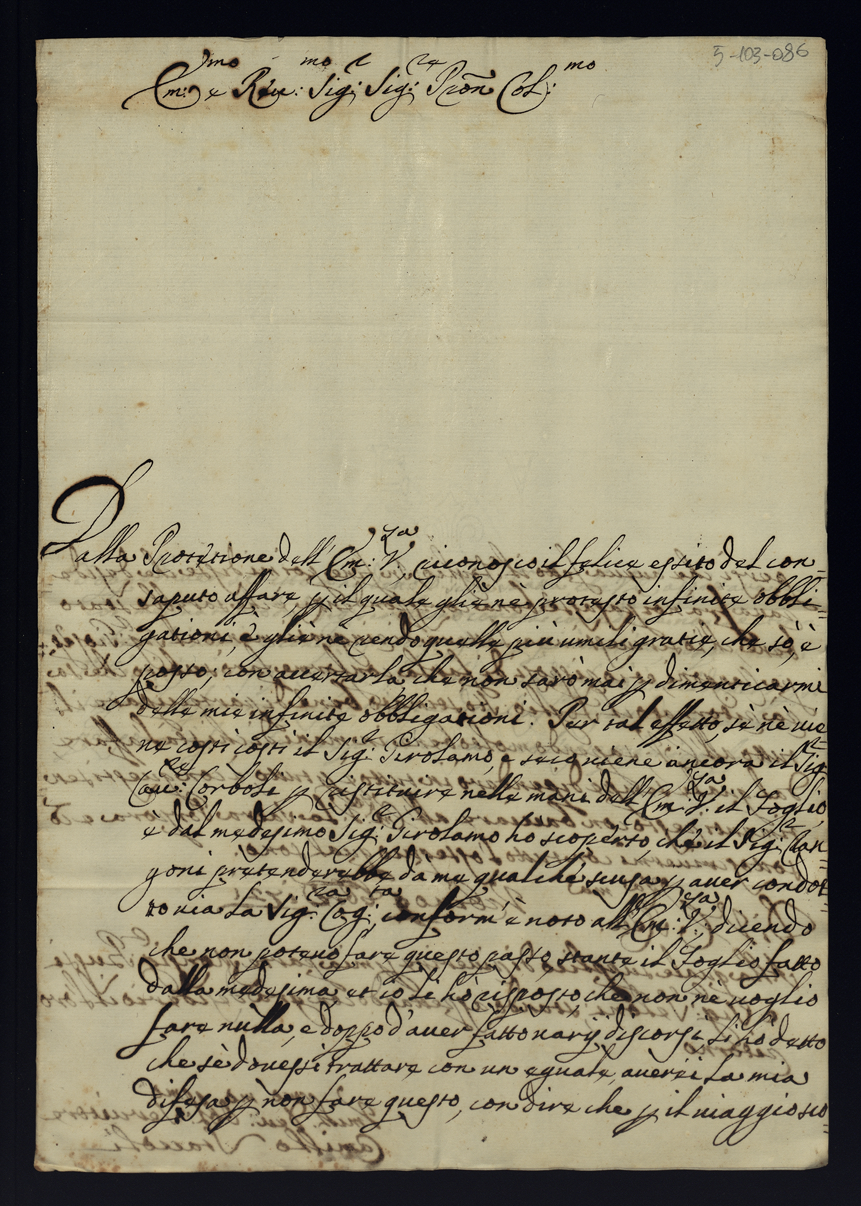 5-103-086
Em:mo e Rev:mo Sig:r Sig:r Pron Col:mo
Dalla Protetione dell' Em:za V:, riconosco il felice essito del con-
saputo affare, p il quale gliè nè protesto infinite obbli-
gationi, è gliè ne rendo quelle più umili gratie, che sò, è
posso; con accertarla che non sarò mai p dimenticarmi
delle mie infinite obbligationi. Per tal effetto sè nè vie-
ne costi costi il Sig:r Girolamo, e seco viene ancora il Sig:r
Cau:re Corboli p restituire nelle mani dell' Em:za V: il Foglio,
e dal medesimo Sig:r Girolamo ho scoperto, che il Sig:r Ran-
goni pretenderebbe da me qualche scusa p aver condot-
to via la Sig:ra Cog:ta, conform' è noto all' Em:za V:, dicendo
che non potevo fare questo passo stante il Foglio fatto
dalla medesima et io li hò risposto che non nè voglio
fare nulla, e doppo d'aver fatto varij discorsi li hò detto
che sè dovessi trattare con un eguale, averei la mia
difesa p non fare questo, con dire che p il viaggio sco-